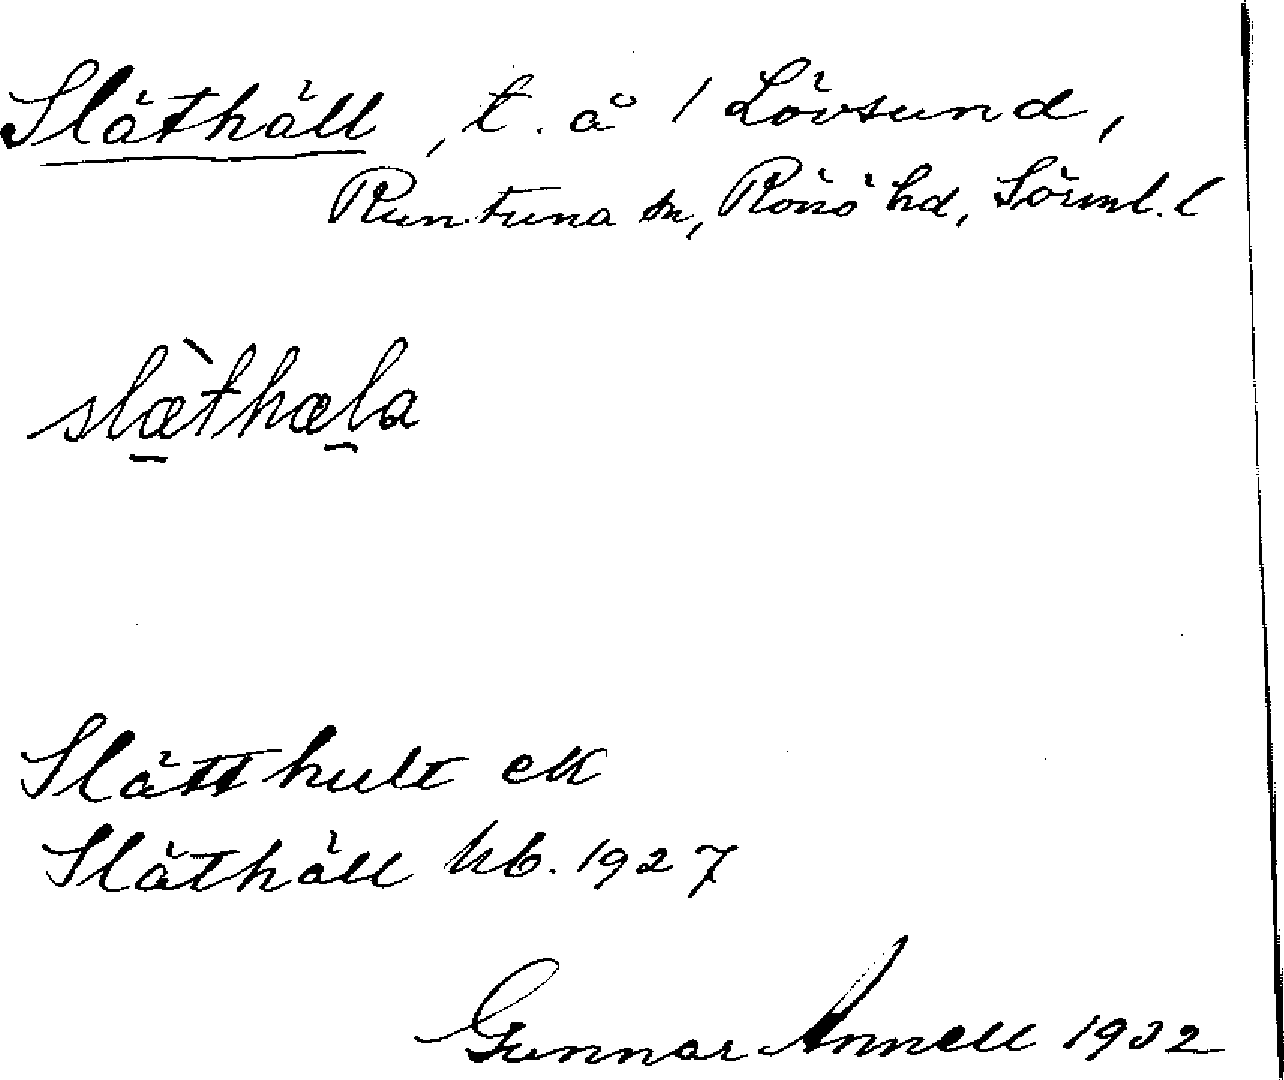 Släthäll, t. å 1 Lövsund,
Runtuna sn, Rönö hd, Sörml. l
slæ̀thæla
Slätthult ek
Släthäll kb. 1927
Gunnar Annell 1932